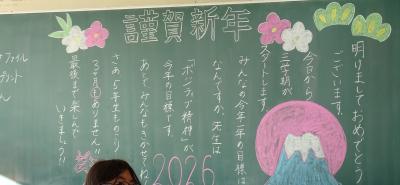 謹賀新年
明けましておめでとう
ございます。
今日から
三学期が
スタートします。
みんなの今年一年の目標は
なんですか。先生は
「ポジティブ精神」が
今年の目標です。
あとでみんなもきかせてね。
さあ、5年生ものこり
3ヶ月もありません!!
最後まで楽しんで
いきましょう!!
2026